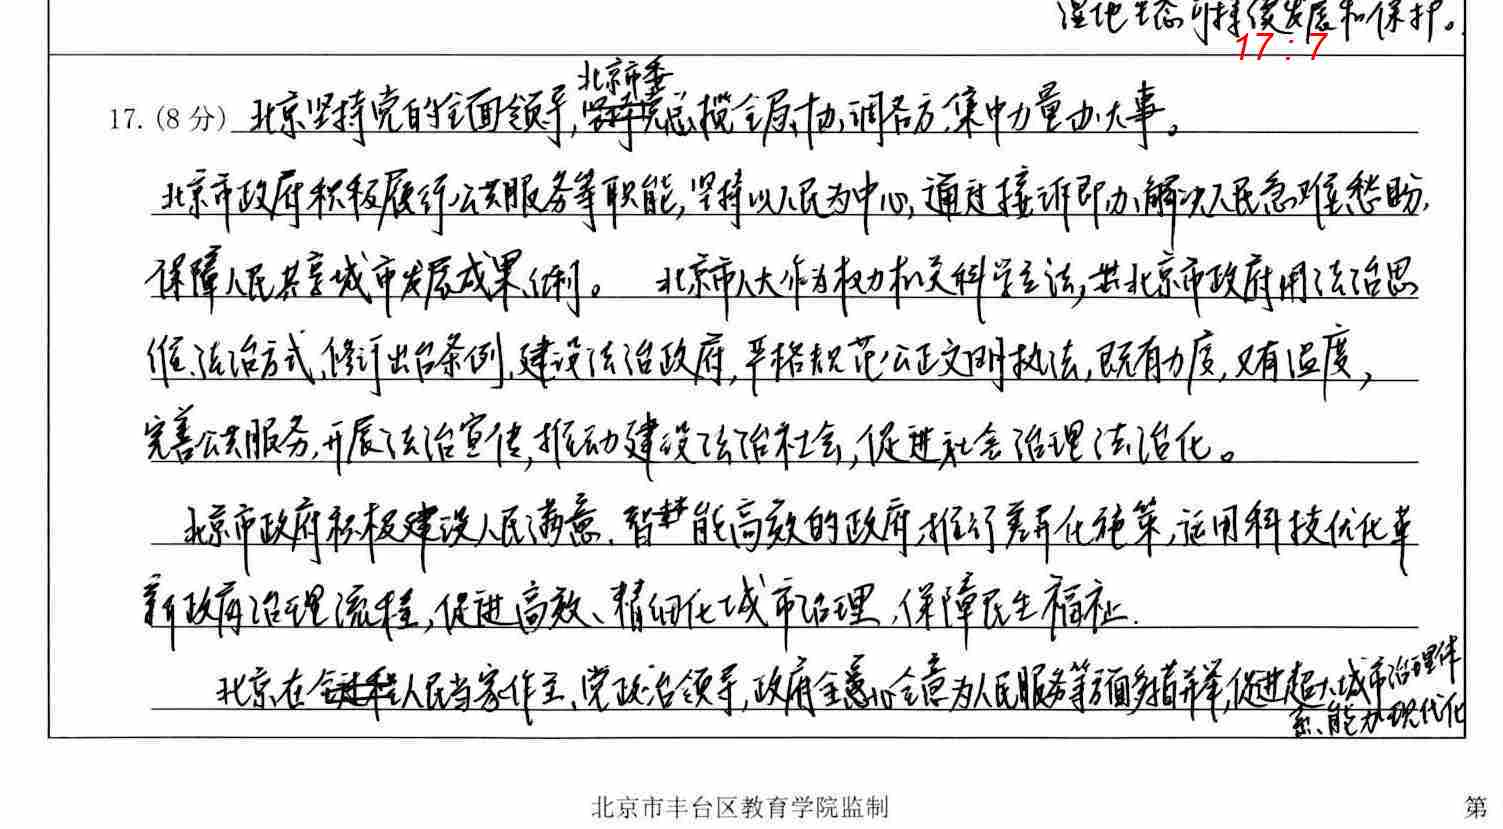 湿地生态可持续发展和保护。
17:7
17. (8分) 北京坚持党的全面领导,北京市委总揽全局、协调各方,集中力量办大事。
北京市政府积极履行公共服务等职能,坚持以人民为中心,通过接诉即办,解决人民急难愁盼,
保障人民共享城市发展成果、便利。 北京市人大作为权力机关科学立法,北京市政府用法治思
维、法治方式,修订出台条例,建设法治政府,严格规范公正文明执法,既有力度,又有温度,
完善公共服务,开展法治宣传,推动建设法治社会,促进社会治理法治化。
北京市政府积极建设人民满意、智能高效的政府,推行差异化施策,运用科技优化革
新政府治理流程,促进高效、精细化城市治理,保障民生福祉.
北京在人民当家作主、党政治领导,政府全心全意为人民服务等方面多措并举,促进超大城市治理体
系、能力现代化
北京市丰台区教育学院监制
第